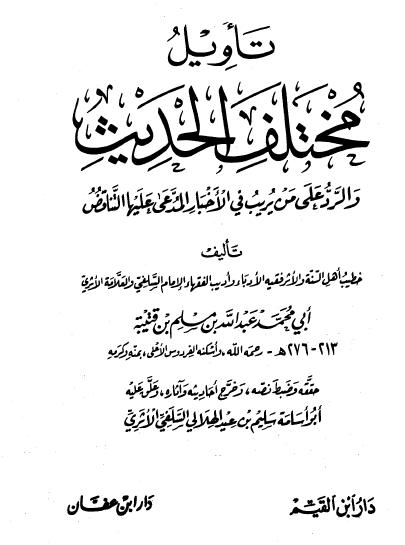 تأويل
مختلف الحديث
والرد على من يريب في الأخبار المدعى عليها التناقض
تأليف
خطيب أهل السنة والأثر فقيه الأدباء وأديب الفقهاء الإمام السلفي والعلامة الأثري
أبي محمد عبد الله بن مسلم بن قتيبة
٢١٣-٢٧٦ هـ - رحمه الله، وأسكنه الفردوس الأعلى، بمنه وكرمه
حققه وضبط نصه، وخرج أحاديثه وآثاره، وعلق عليه
أبو أسامة سليم بن عيد الهلالي السلفي الأثري
دار ابن القيم
دار ابن عفان